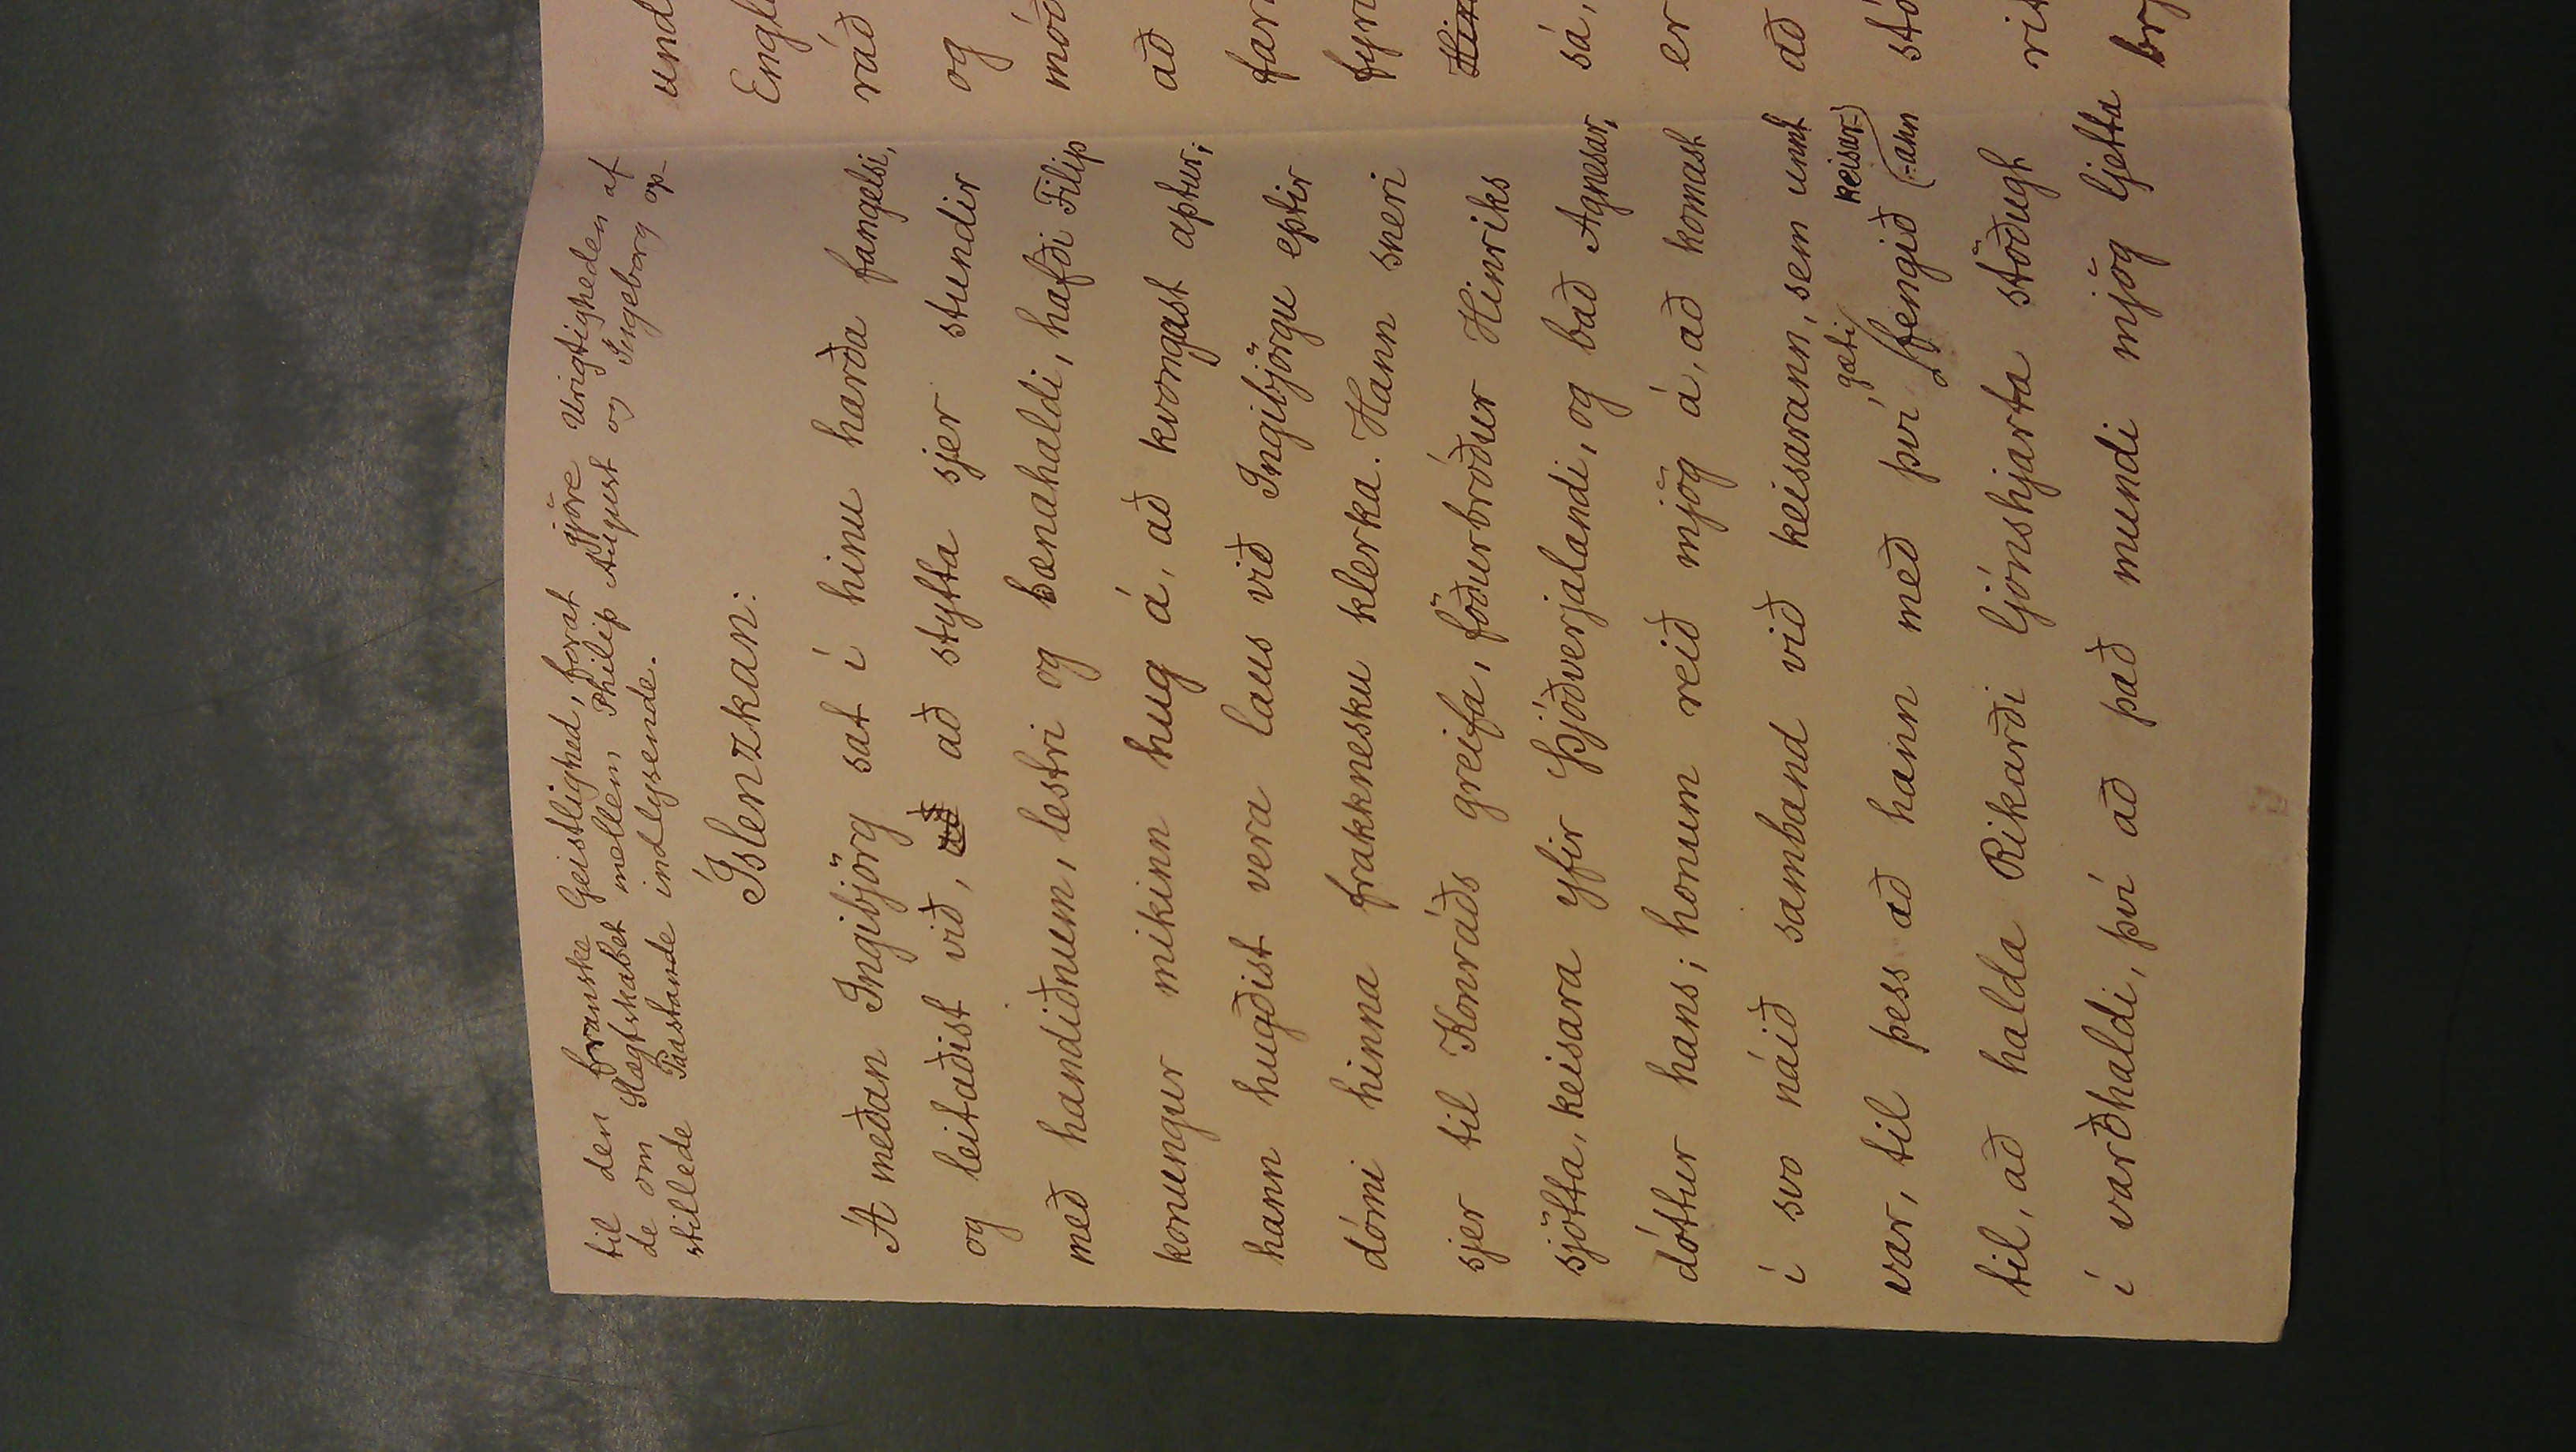 til den franske Geistlighed, forat gjöre Urigtigheden af
de om Slægtskabet mellem Philip August og Ingeborg op-
stillede Paastande indlysende.
Íslenzkan:
Á meðan Ingibjörg sat í hinu harða fangelsi,
og leitaðist við, að að stytta sjer stundir
með handiðnum, lestri og bænahaldi, hafði Filip
konungur mikinn hug á, að kvongast aptur;
hann hugðist vera laus við Ingibjörgu eptir
dómi hinna frakknesku klerka. Hann sneri
sjer til Konráðs greifa, föðurbróður Hinriks
sjötta, keisara yfir Þjóðverjalandi, og bað Agnesar,
dóttur hans; honum reið mjög á, að komast
í svo náið samband við keisarann, sem unnt
var, til þess að hann með því gæti fengið keisar-
(-ann
til, að halda Rikarði ljónshjarta stöðugt
í varðhaldi, því að það mundi mjög ljetta
und
Engl
ráð
og
móð
að
far
fyri
Hin
sá,
er
að
stó
rit
brj